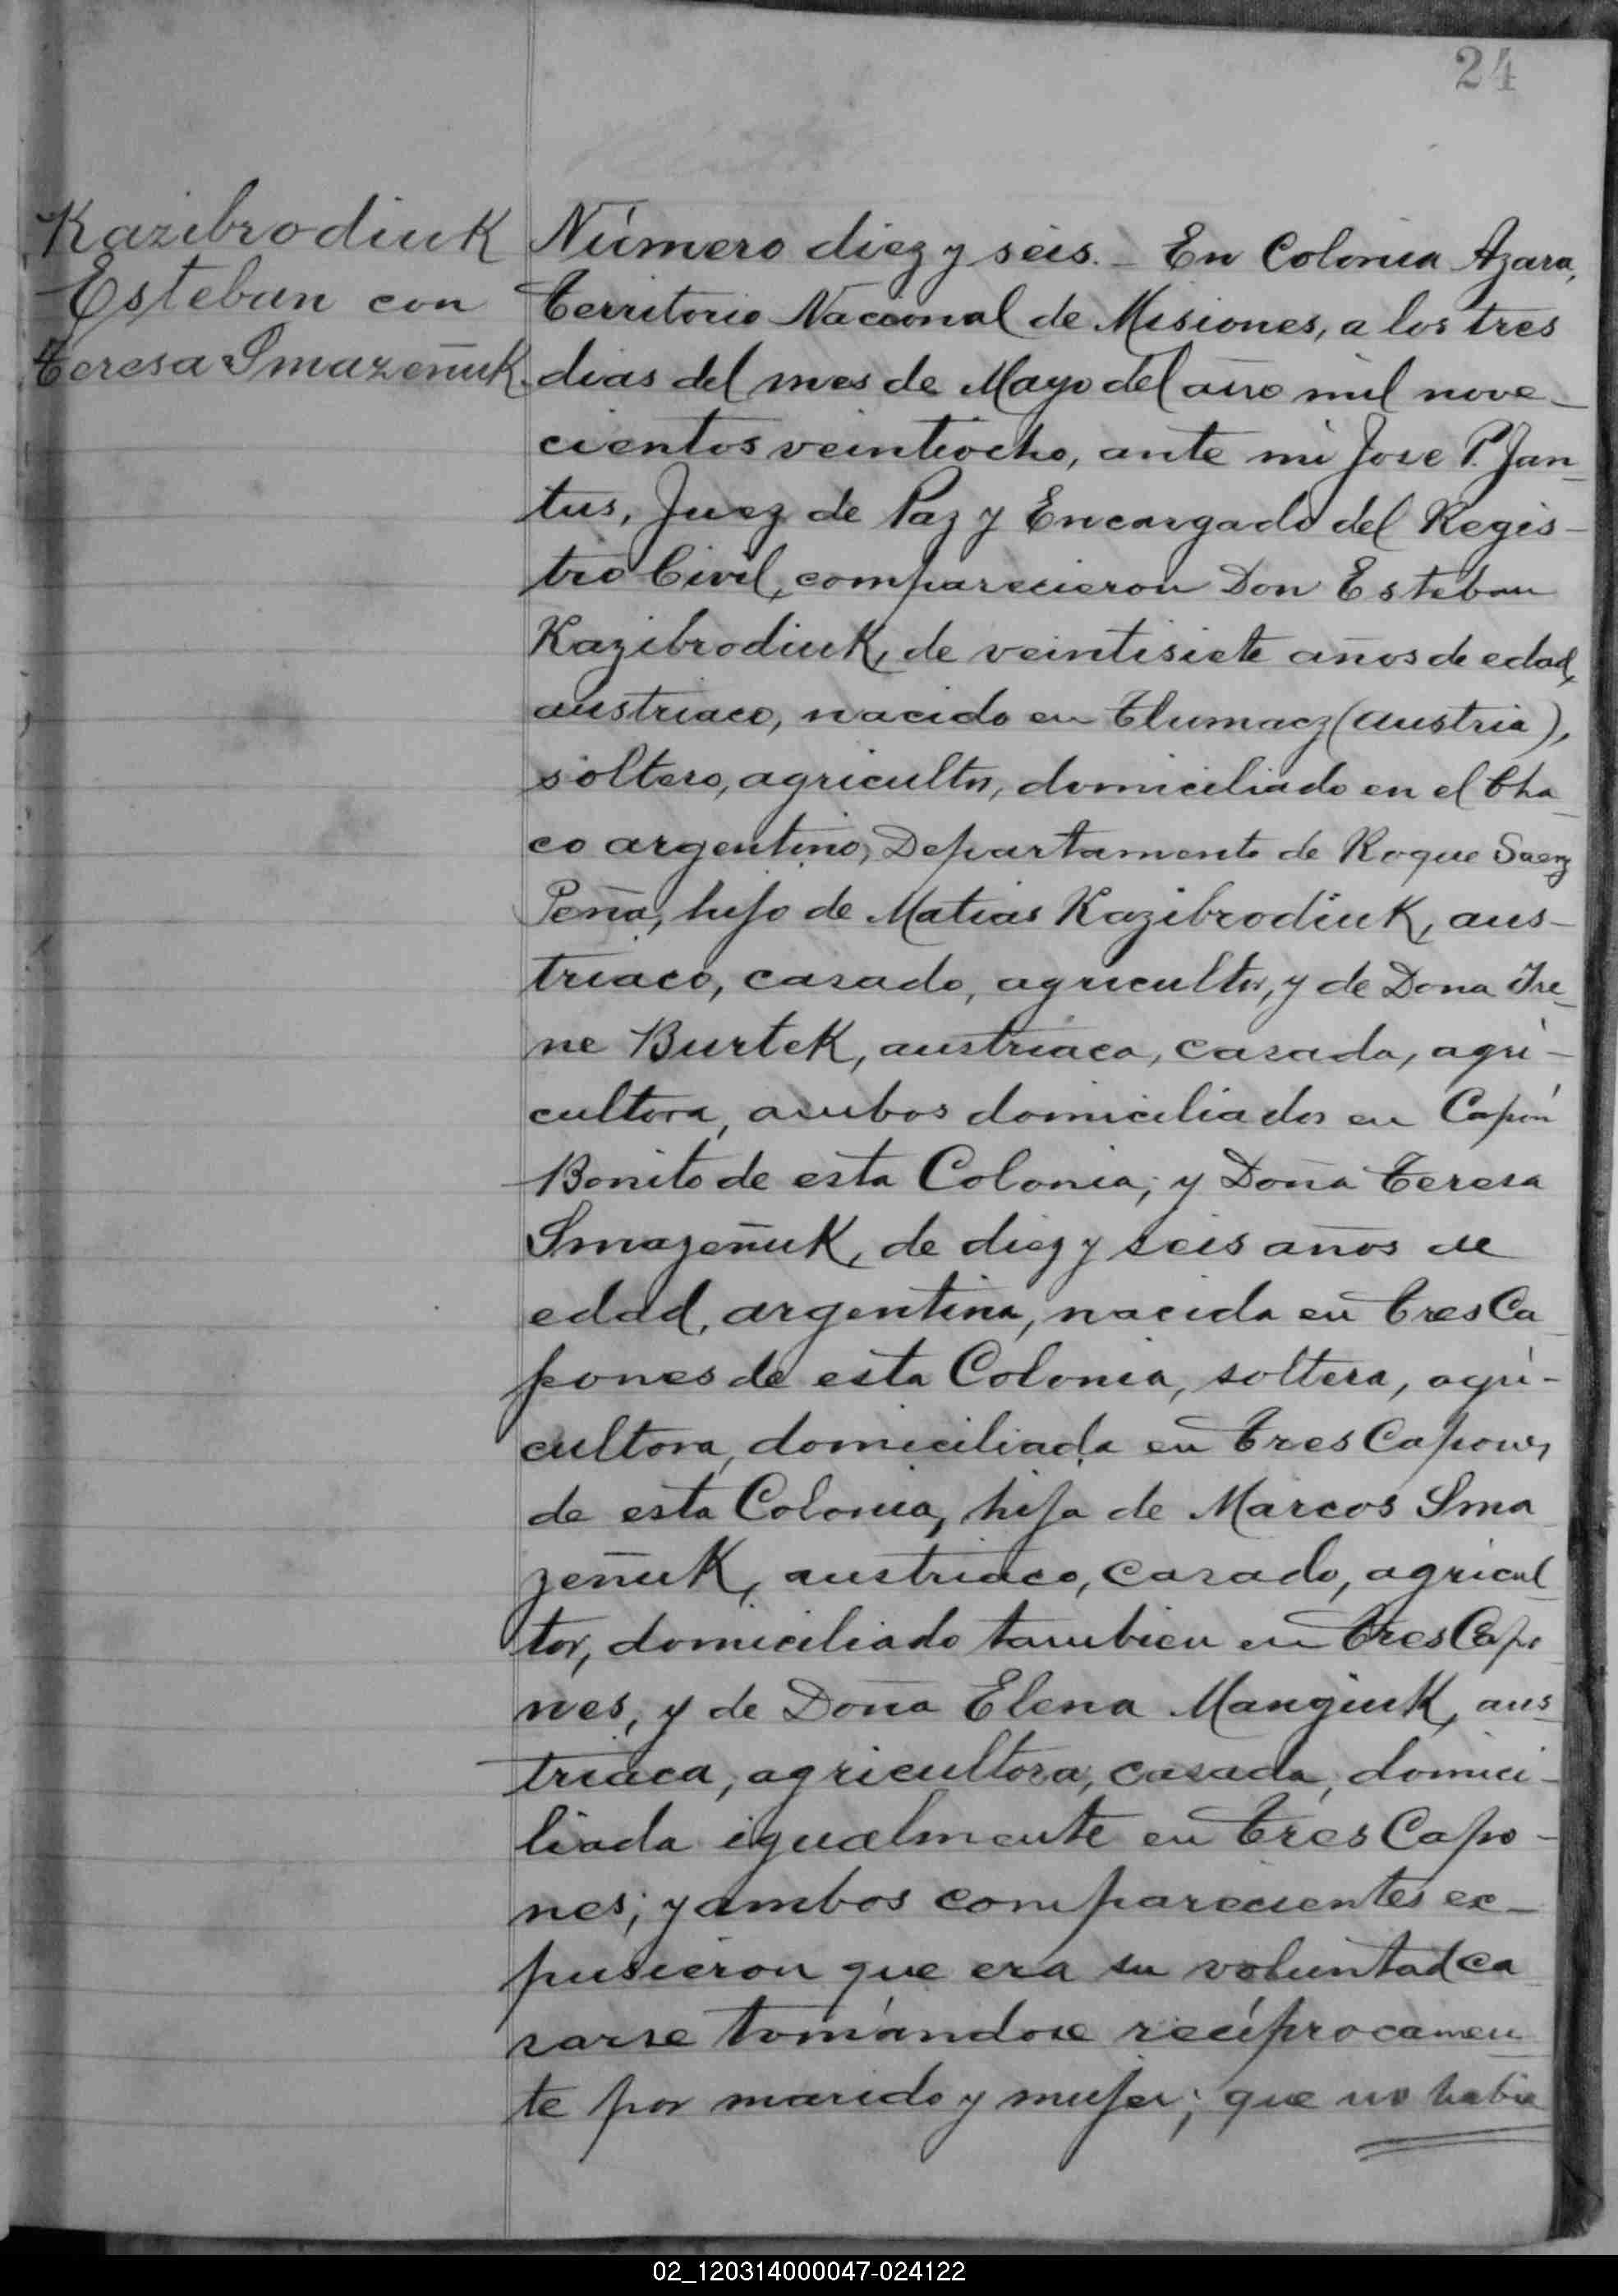 24
Kazibrodiuk
Esteban con
Teresa Smazeñuk.
Número diez y seis. - En Colonia Azara,
Territorio Nacional de Misiones, a los tres
dias del mes de Mayo del año mil nove-
cientos veintiocho, ante mi Jose P. Jan-
tus, Juez de Paz y Encargado del Regis-
tro Civil, comparecieron Don Esteban
Kazibrodiuk, de veintisiete años de edad,
austriaco, nacido en Tlumacz (Austria),
soltero, agricultor, domiciliado en el Cha-
co argentino, Departamento de Roque Saenz
Peña, hijo de Matias Kazibrodiuk, aus-
triaco, casado, agricultor, y de Dona Ire-
ne Burtek, austriaca, casada, agri-
cultora, ambos domiciliados en Capón
Bonito de esta Colonia; y Doña Teresa
Smazeñuk, de diez y seis años de
edad, argentina, nacida en Tres Ca-
pones de esta Colonia, soltera, agri-
cultora, domiciliada en Tres Capones
de esta Colonia, hija de Marcos Sma-
zeñuk, austriaco, casado, agricul-
tor, domiciliado tambien en Tres Capo-
nes, y de Doña Elena Mangiuk, aus-
triaca, agricultora, casada, domici-
liada igualmente en Tres Capo-
nes; y ambos comparecientes ex-
pusieron que era su voluntad ca-
sarse tomándose recíprocamen-
te por marido y mujer; que no habia
02_120314000047-024122